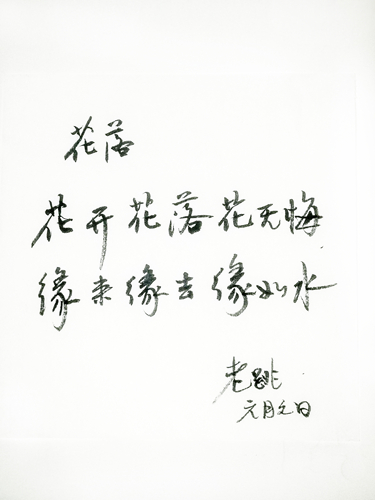 花落
花开花落花无悔
缘来缘去缘如水
老跳
元月元日